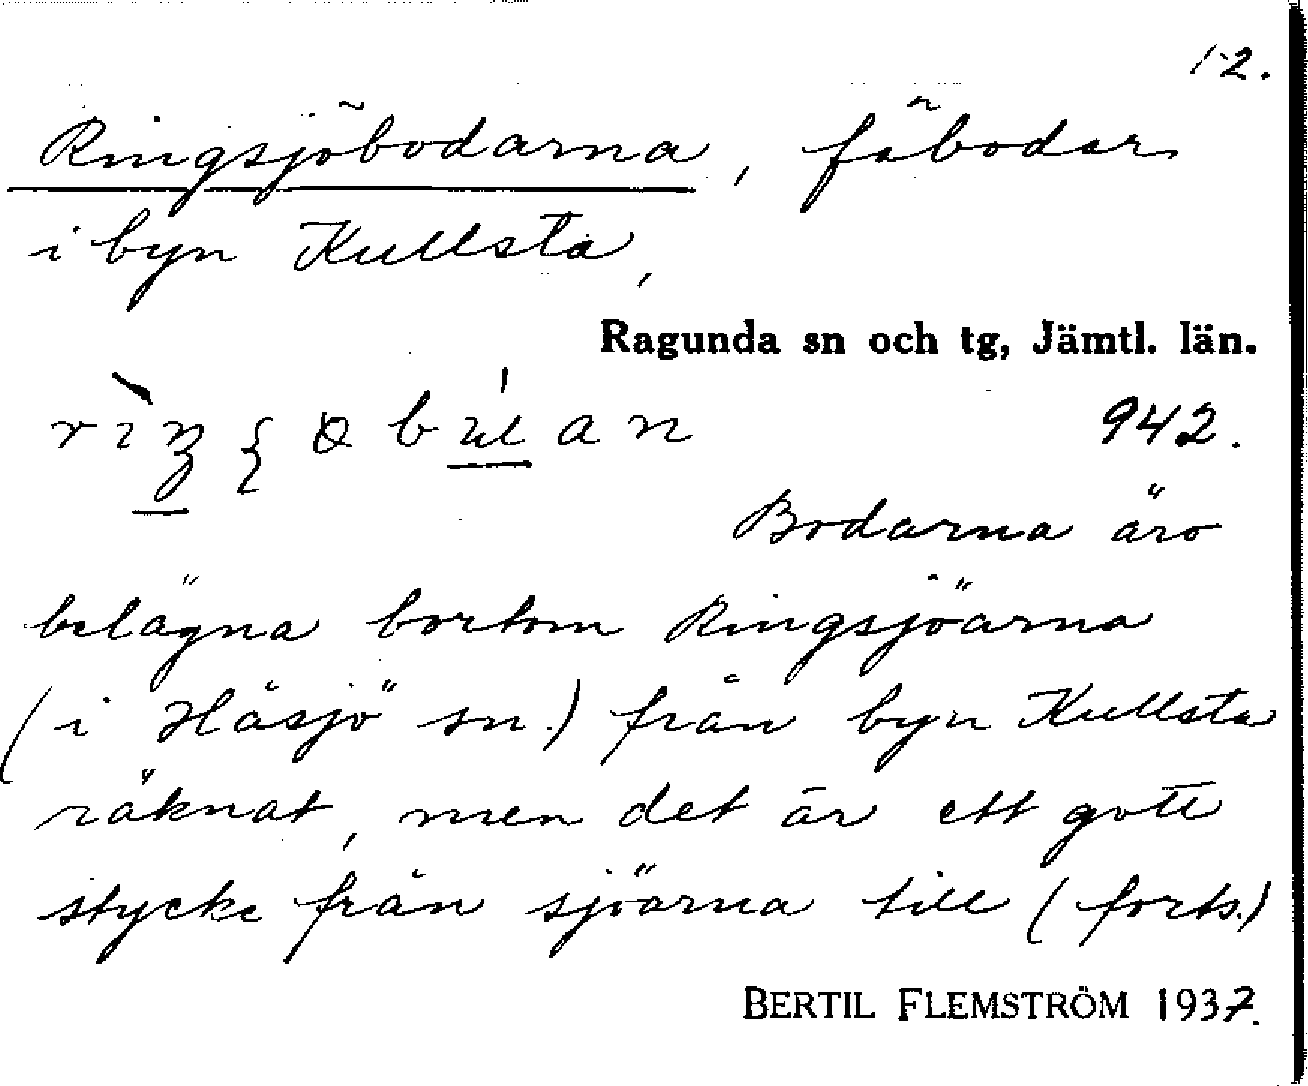 1-2.
Ringsjöbodarna, fäbodar
i byn Kullsta,
Ragunda sn och tg, Jämtl. län.
942.
Bodarna äro
belägna bortom Ringsjöarna
(i Håsjö sn.) från byn Kullsta
räknat, men det är ett gott
stycke från sjöarna till (forts.)
BERTIL FLEMSTRÖM 1937.